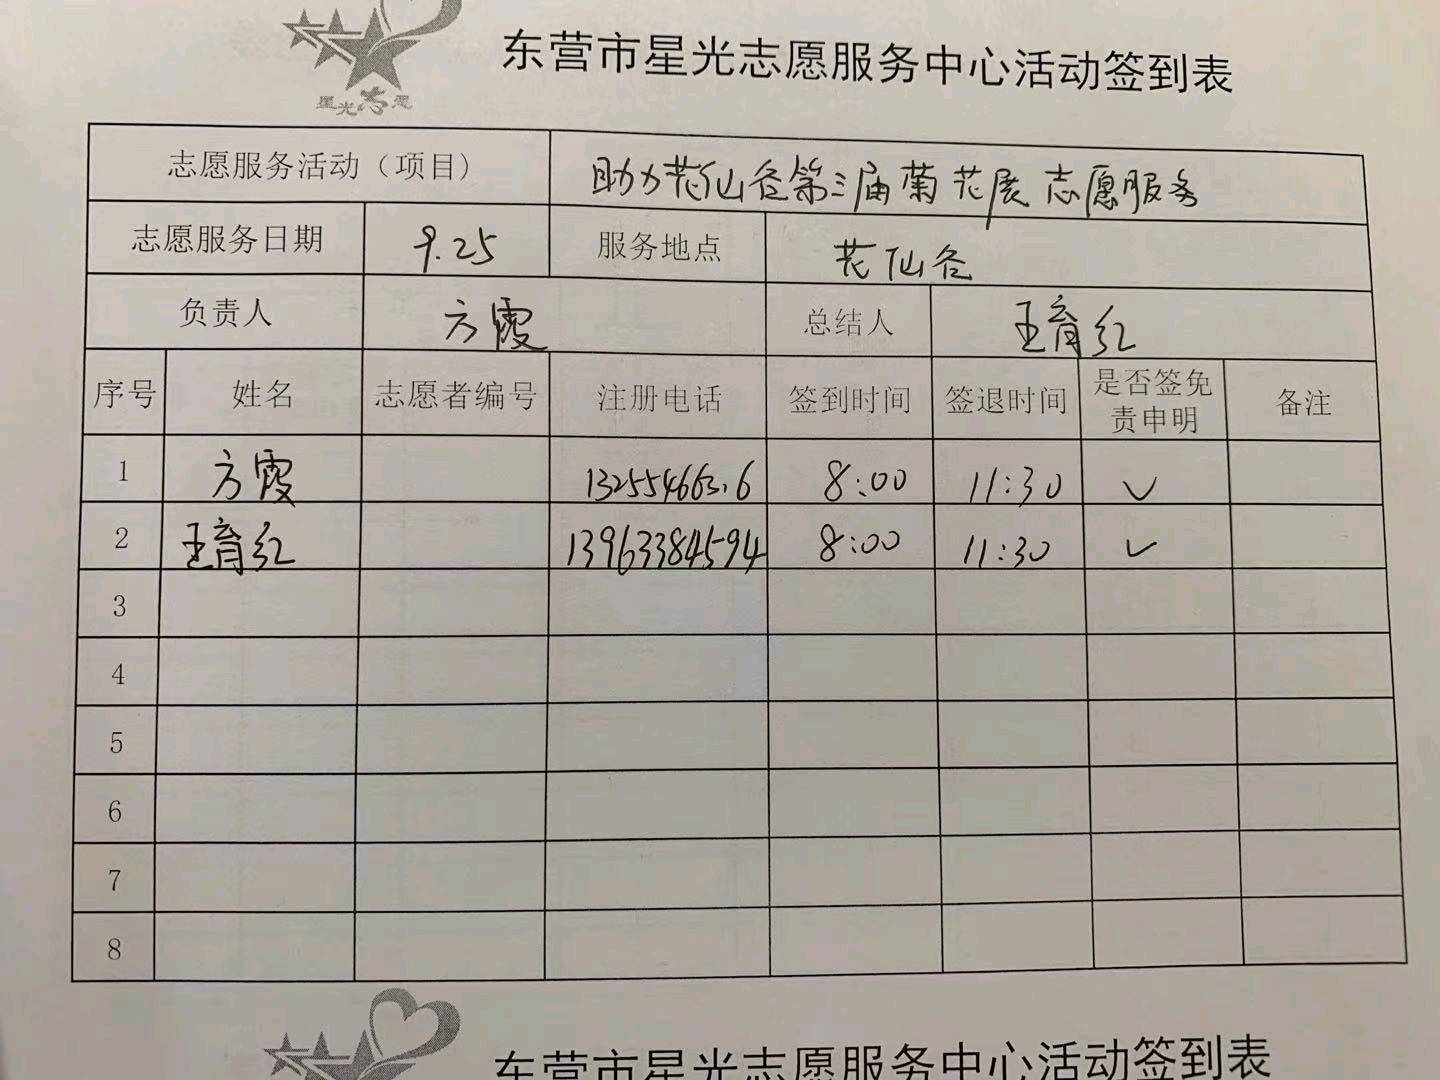 星光志愿
东营市星光志愿服务中心活动签到表
志愿服务活动（项目） 助力花仙谷第三届菊花展志愿服务
志愿服务日期 9.25 服务地点 花仙谷
负责人 方霞 总结人 王育红
序号 姓名 志愿者编号 注册电话 签到时间 签退时间 是否签免责申明 备注
1 方霞 8:00 11:30 ✓
2 王育红 13963384594 8:00 11:30 ✓
3
4
5
6
7
8
东营市星光志愿服务中心活动签到表